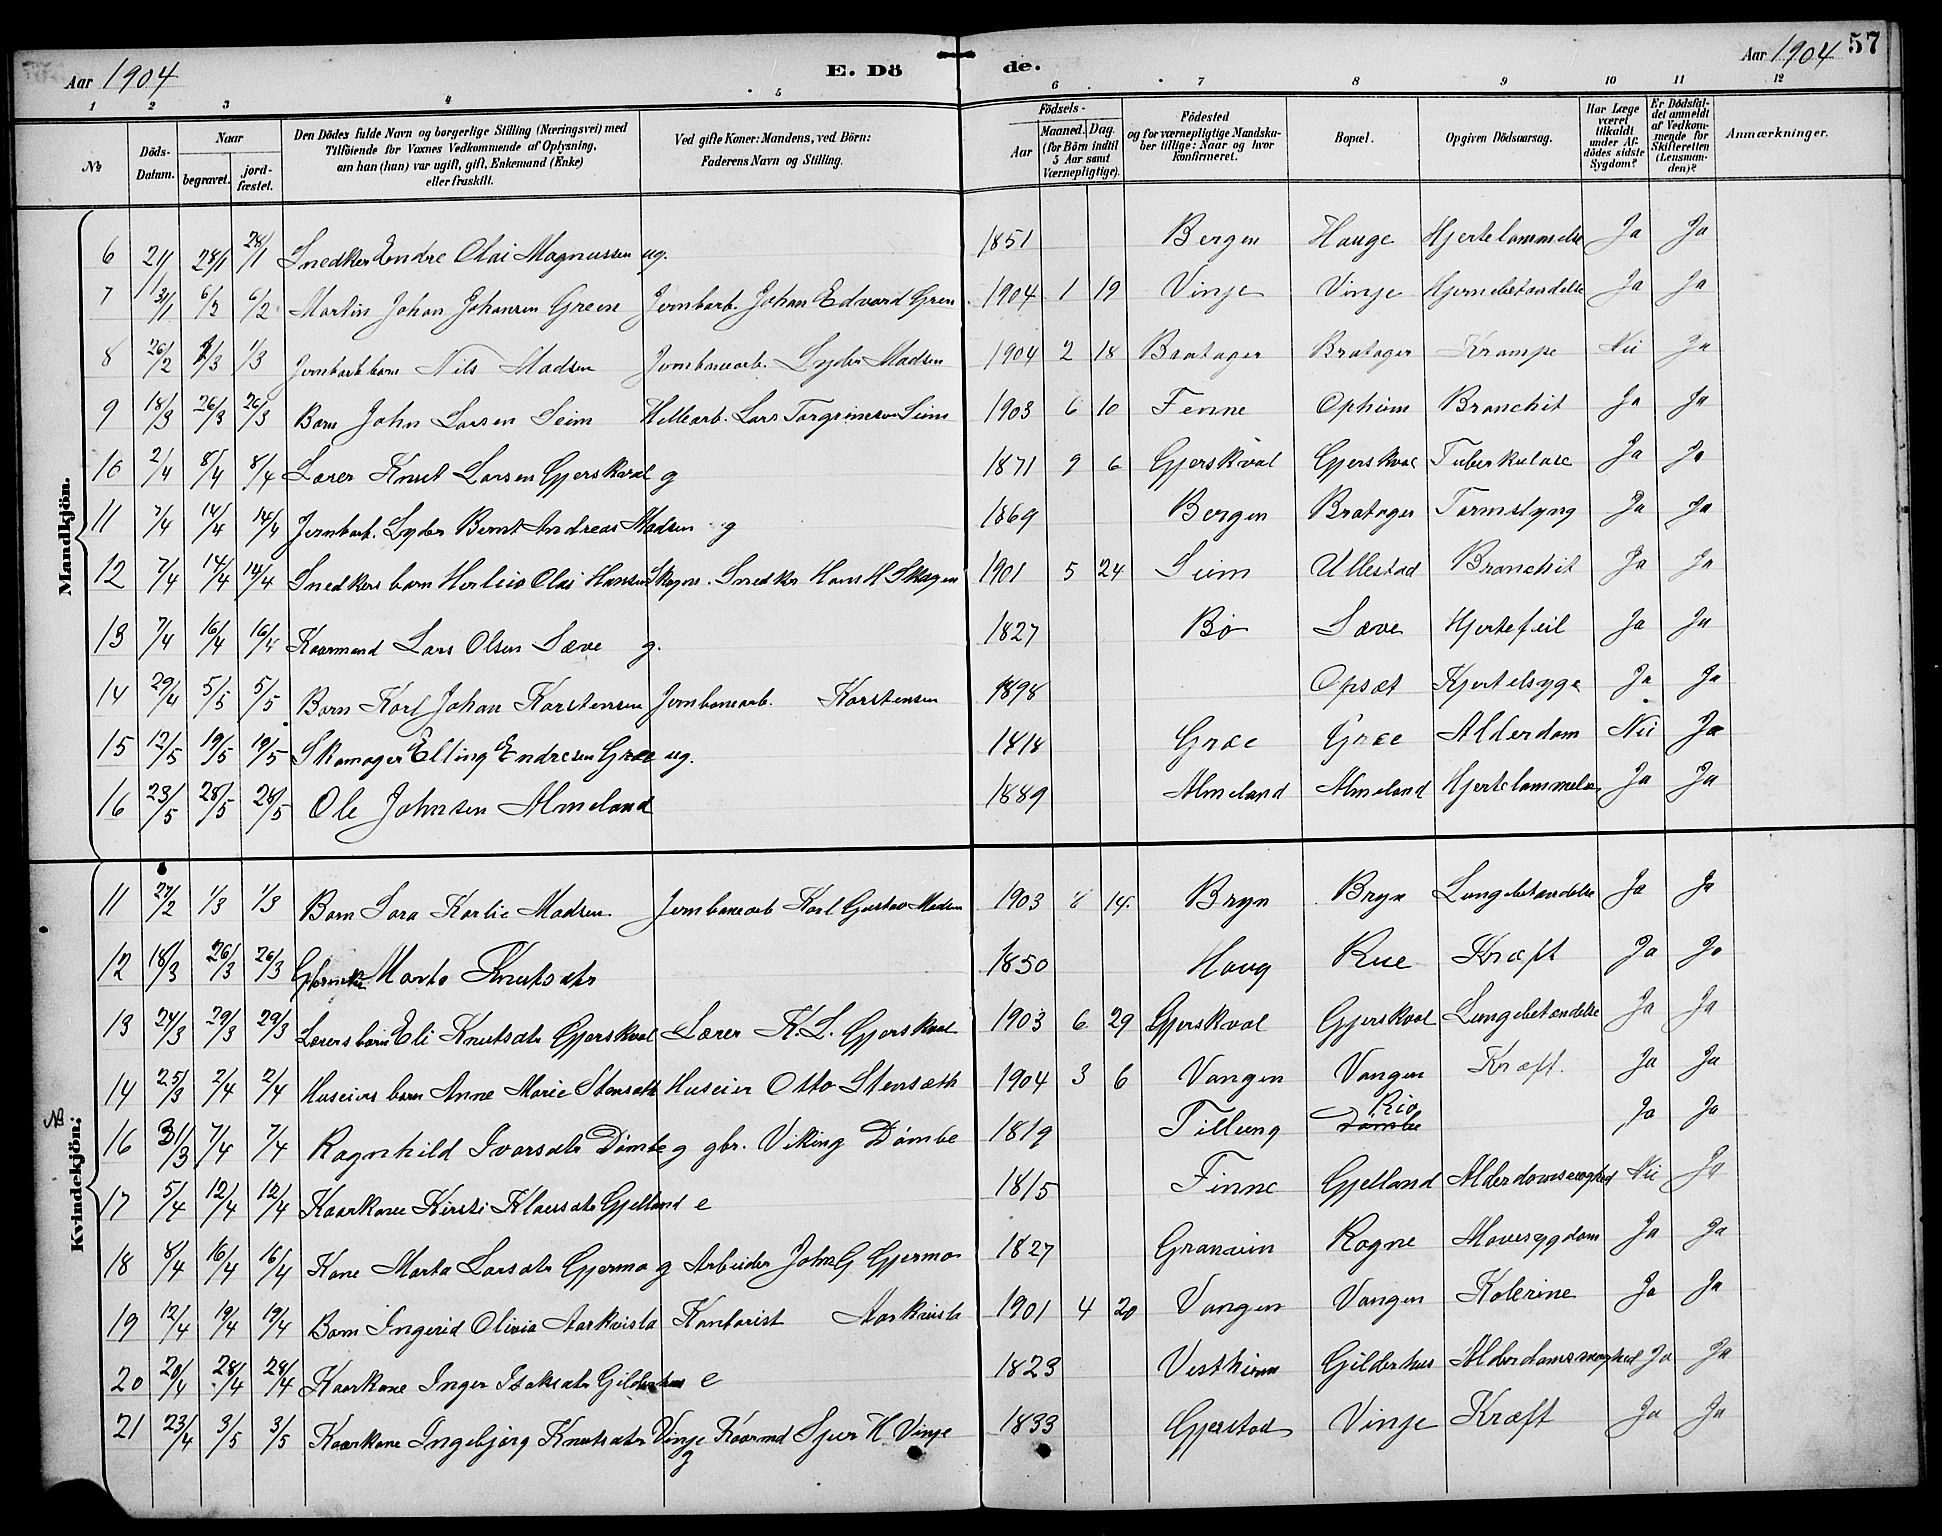 Aar 1904 E. Dö de. Aar 1904 57
1 2 3 4 5 6 7 8 9 10 11 12
№
Döds-Datum.
Naar
begravet.
jord-fæstet.
Den Dödes fulde Navn og borgerlige Stilling (Næringsvei) med
Tilföiende for Voxnes Vedkommende af Oplysning,
om han (hun) var ugift, gift, Enkemand (Enke)
eller fraskilt.
Ved gifte Koner: Mandens, ved Börn:
Faderens Navn og Stilling.
Födsels-
Aar
Maaned. Dag.
(for Börn indtil
5 Aar samt
Værnepligtige).
Födested
og for værnepligtige Mandska-
ber tillige: Naar og hvor
konfirmeret.
Bopæl.
Opgiven Dödsaarsag.
Har Læge
været
tilkaldt
under Af-
dödes sidste
Sygdom?
Er Dödsfal-
det anmeldt
af Vedkom-
mende for
Skifteretten
(Lensman-
den)?
Anmærkninger.
Mandkjön.
6 21/1 28/1 28/1 Snedker Endre Olai Magnussen ug. 1851 Bergen Hauge Hjertelammelse Ja Ja
7 31/1 6/2 6/2 Martin Johan Johansen Green Jernbarb. Johan Edvard Green 1904 1 19 Vinje Vinje Hjernebetændelse Ja Ja
8 26/2 1/3 1/3 Jernbarb barn Nils Madsen Jernbanearb. Lyder Madsen 1904 2 18 Bratager Bratager Krampe Nei Ja
9 18/3 26/3 26/3 Barn John Larsen Seim Hellearb. Lars Torgrimsen Seim 1903 6 10 Fenne Ophiim Bronchit Ja Ja
10 2/4 8/4 8/4 Lærer Knut Larsen Gjerskval g 1871 9 6 Gjerskval Gjerskval Tuberkulose Ja Ja
11 7/4 14/4 14/4 Jernbarb. Lyder Bernt Andreas Madsen g 1869 Bergen Bratager Tarmslyng Ja Ja
12 7/4 14/4 14/4 Snedkers barn Herleio Olai Hansen Skogen. Snedker Hans H Skogen 1901 5 24 Seim Ullestad Bronchit Ja Ja
13 7/4 16/4 16/4 Kaarmand Lars Olsen Sæve g. 1827 Bø Sæve Hjertefeil Ja Ja
14 29/4 5/5 5/5 Barn Karl Johan Karstensen Jernbanearb. Karstensen 1898 Opsæt Kjertelsyge Ja Ja
15 12/5 19/5 19/5 Skomager Elling Endresen Græe ug. 1818 Græe Græe Alderdom Nei Ja
16 23/5 28/5 28/5 Ole Johnsen Almeland 1889 Almeland Almeland Hjertelammelse Ja Ja
Kvindekjön: №
11 27/2 1/3 1/3 Barn Sara Karlie Madsen Jernbanearb Karl Gustav Madsen 1903 8 14. Bryn Bryn Lungebetændelse Ja Ja
12 18/3 26/3 26/3 Marta Knutsdtr 1850 Haug Rue Kræft Ja Ja
13 24/3 29/3 29/3 Lærers barn Eli Knutsdtr Gjerskval Lærer K. L. Gjerskval 1903 6 29 Gjerskval Gjerskval Lungebetændelse Ja Ja
14 25/3 2/4 2/4 Huseiers barn Anne Marie Stensæth Huseier Otto Stensæth 1904 3 6 Vangen Vangen Kræft. Ja Ja
16 31/3 7/4 7/4 Ragnhild Ivarsdtr Dømbe g gbr. Viking Dømbe 1819 Tillung Dømbe Rio Ja Ja
17 5/4 12/4 12/4 Kaarkone Kirsti Klausdtr Gjelland e 1815 Finne Gjelland Alderdomssvaghed Nei Ja
18 8/4 16/4 16/4 Kone Marta Larsdtr Gjermo g Arbeider John G Gjermo 1827 Granvin Rogne Mavesygdom Ja Ja
19 12/4 19/4 19/4 Barn Ingerid Olivia Aarkvisla Kontorist Aarkvisla 1901 4 20 Vangen Vangen Kolerine Ja Ja
20 20/4 28/4 28/4 Kaarkone Inger Isaksdtr Gilderhus e 1823 Vestheim Gilderhus Alderdomssvaghed Ja Ja
21 23/4 3/5 3/5 Kaarkone Ingebjørg Knutsdtr Vinje g Kaarmd Sjur K Vinje 1833 Gjerstad Vinje Kræft Ja Ja